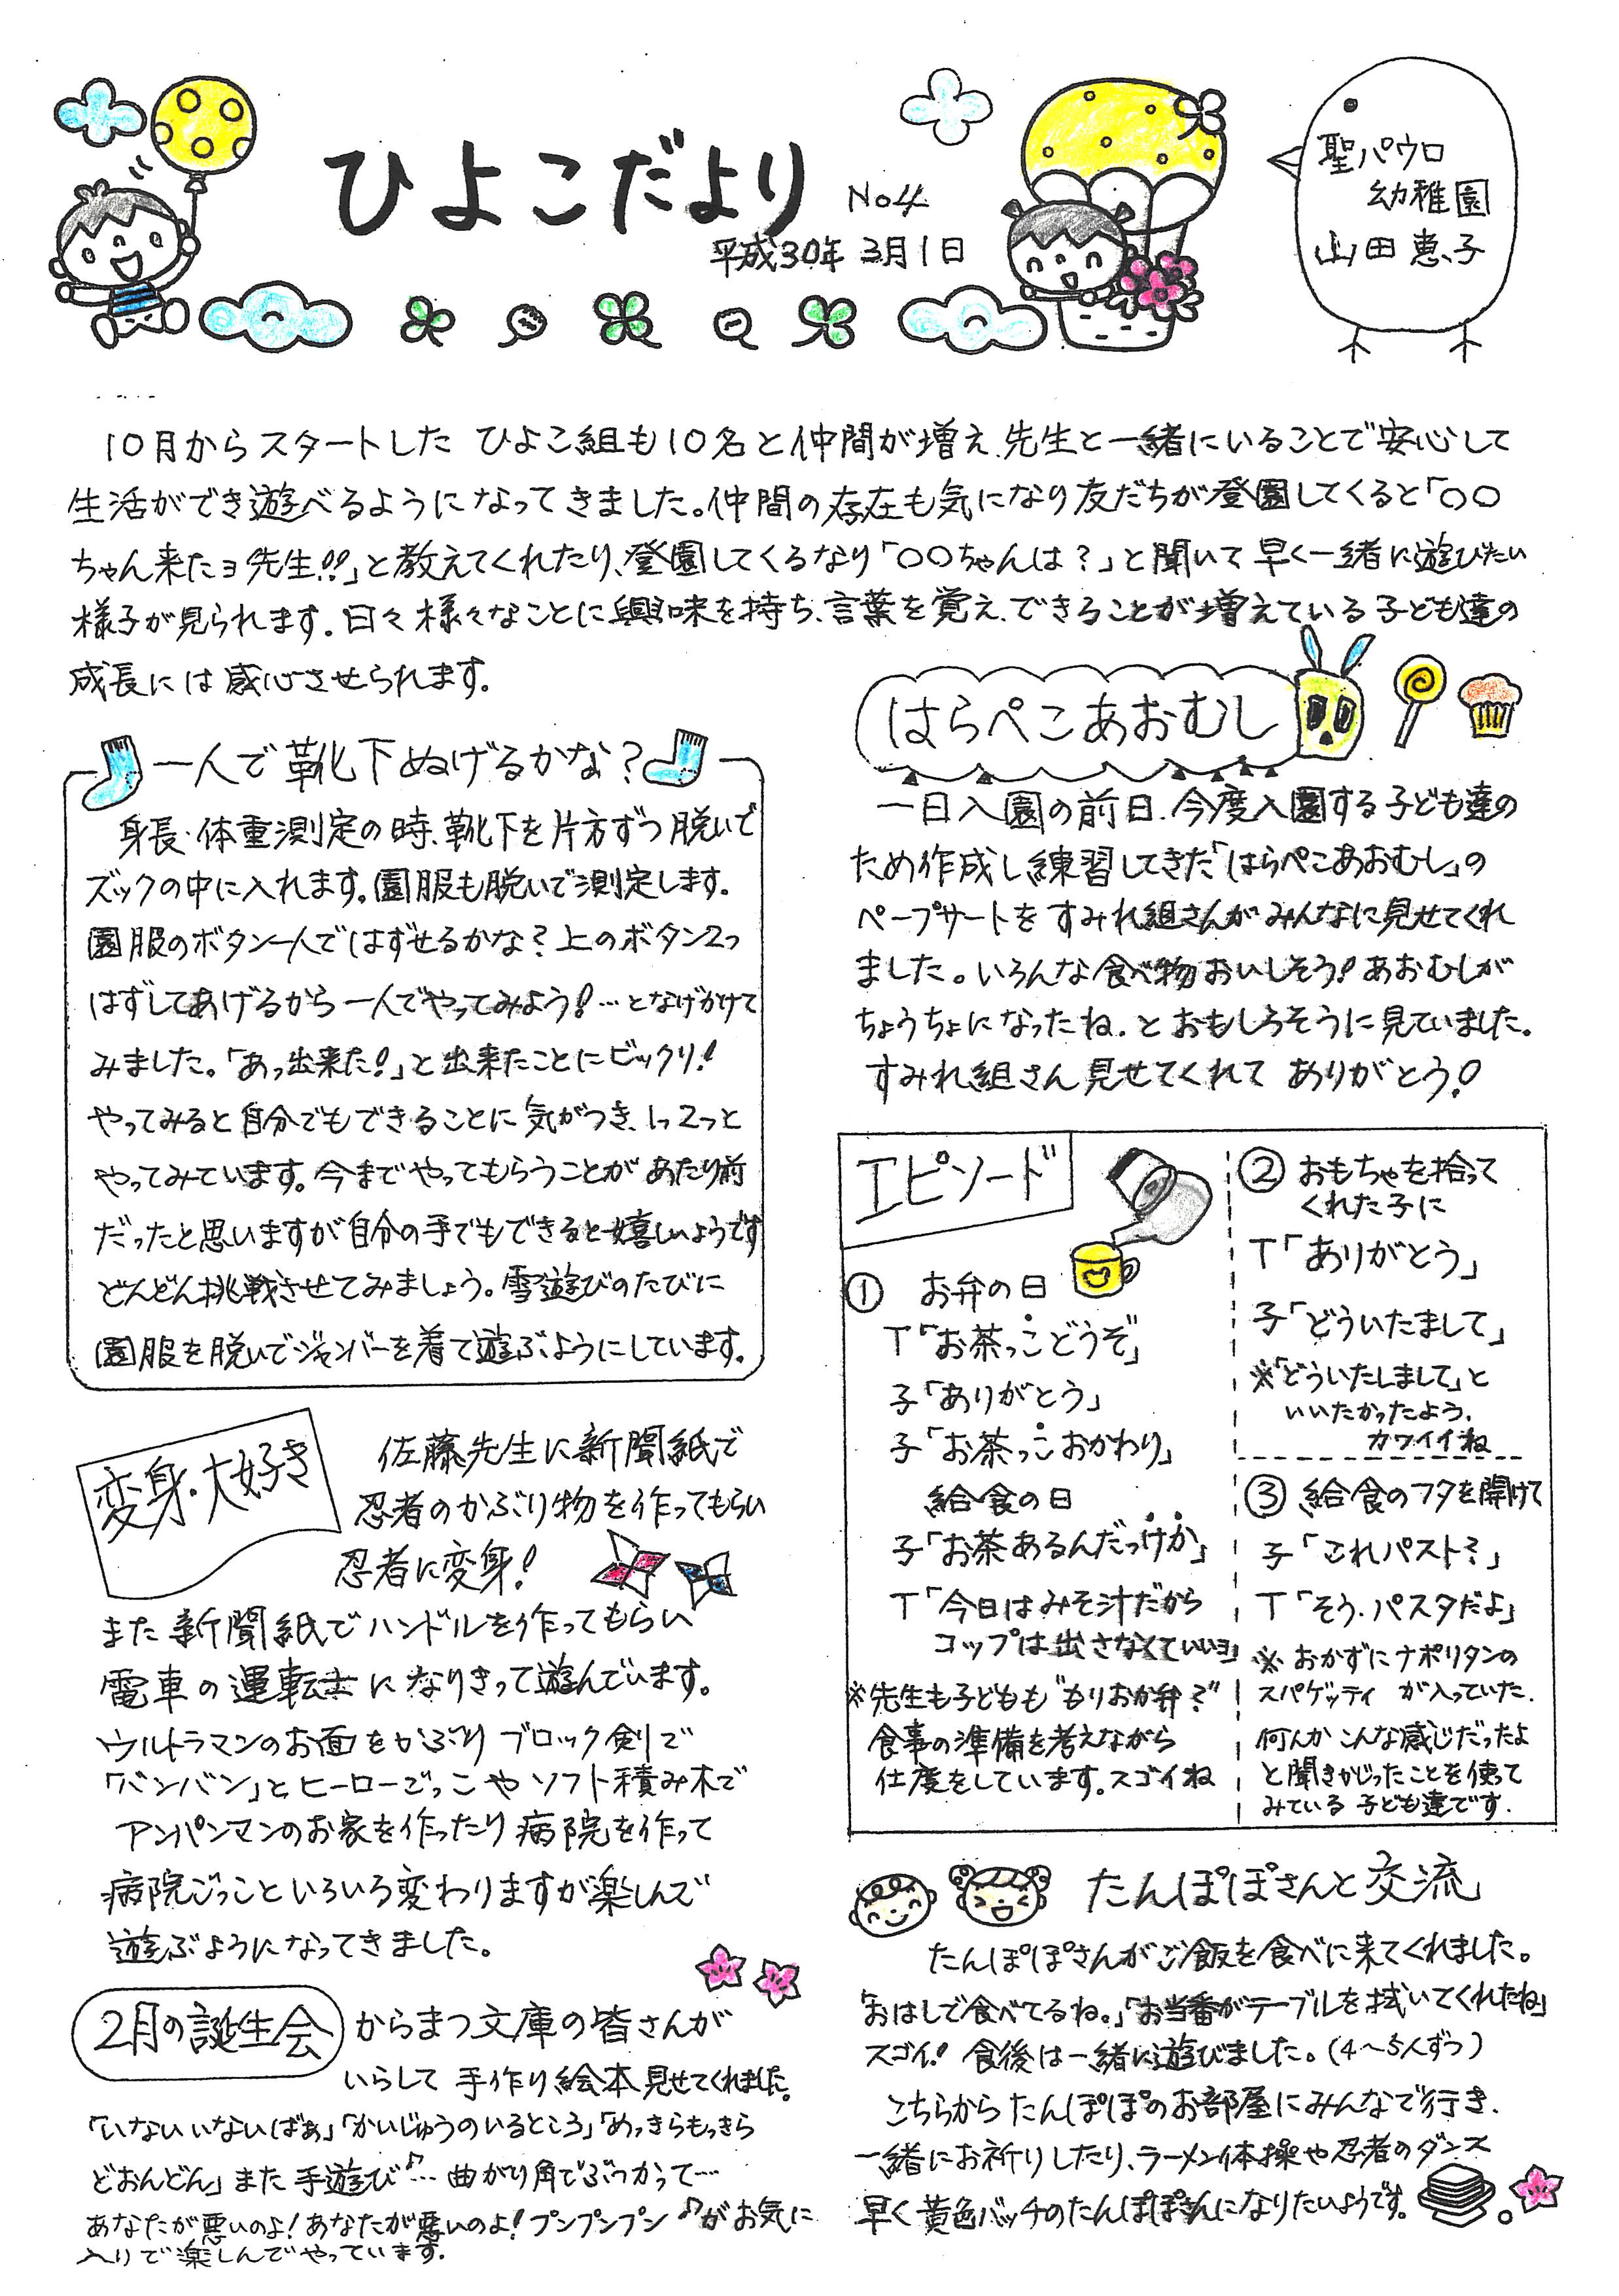 ひよこだより No4
平成30年 3月1日
聖パウロ
幼稚園
山田恵子
10月からスタートした ひよこ組も10名と仲間が増え、先生と一緒にいることで安心して
生活ができ遊べるようになってきました。仲間の存在も気になり友だちが登園してくると「〇〇
ちゃん来たヨ先生!!」と教えてくれたり、登園してくるなり「〇〇ちゃんは?」と聞いて早く一緒に遊びたい
様子が見られます。日々様々なことに興味を持ち、言葉を覚え、できることが増えている子ども達の
成長には感心させられます。
一人で靴下ぬげるかな?
身長・体重測定の時、靴下を片方ずつ脱いで
ズックの中に入れます。園服も脱いで測定します。
園服のボタン一人ではずせるかな? 上のボタン2つ
はずしてあげるから一人でやってみよう!…となげかけて
みました。「あっ出来た!」と出来たことにビックリ!
やってみると自分でもできることに気がつき、1つ2つと
やってみています。今までやってもらうことがあたり前
だったと思いますが自分の手でもできると嬉しいようです
どんどん挑戦させてみましょう。雪遊びのたびに
園服を脱いでジャンバーを着て遊ぶようにしています。
変身・大好き
佐藤先生に新聞紙で
忍者のかぶり物を作ってもらい
忍者に変身!
また新聞紙でハンドルを作ってもらい
電車の運転士になりきって遊んでいます。
ウルトラマンのお面をかぶり ブロック剣で
「バンバン」とヒーローごっこや ソフト積み木で
アンパンマンのお家を作ったり 病院を作って
病院ごっこといろいろ変わりますが楽しんで
遊ぶようになってきました。
2月の誕生会
からまつ文庫の皆さんが
いらして 手作り絵本見せてくれました。
「いないいないばぁ」「かいじゅうのいるところ」「めっきらもっきら
どおんどん」また 手遊び♪… 曲がり角でぶつかって…
あなたが悪いのよ!あなたが悪いのよ!プンプンプン♪がお気に
入りで楽しんでやっています。
はらぺこあおむし
一日入園の前日、今度入園する子ども達の
ため作成し練習してきた「はらぺこあおむし」の
ペープサートをすみれ組さんがみんなに見せてくれ
ました。いろんな食べ物おいしそう!あおむしが
ちょうちょになったね、とおもしろそうに見ていました。
すみれ組さん見せてくれて ありがとう!
エピソード
① お弁の日
T「お茶っこどうぞ」
子「ありがとう」
子「お茶っこおかわり」
給食の日
子「お茶あるんだっけか」
T「今日はみそ汁だから
コップは出さなくていいヨ」
※先生も子どもも“もりおか弁?”
食事の準備を考えながら
仕度をしています。スゴイね
② おもちゃを拾って
くれた子に
T「ありがとう」
子「どういたまして」
※「どういたしまして」と
いいたかったよう.
カワイイね
③ 給食のフタを開けて
子「これパスト?」
T「そう.パスタだよ」
※ おかずにナポリタンの
スパゲッティ が入っていた.
何んかこんな感じだったよ
と聞きかじったことを使って
みている 子ども達です.
たんぽぽさんと交流
たんぽぽさんがご飯を食べに来てくれました。
「おはしで食べてるね。」「お当番がテーブルを拭いてくれたね」
スゴイ! 食後は一緒に遊びました。(4~5人ずつ)
こちらからたんぽぽのお部屋にみんなで行き、
一緒にお祈りしたり、ラーメン体操や忍者のダンス
早く黄色バッチのたんぽぽさんになりたいようです。